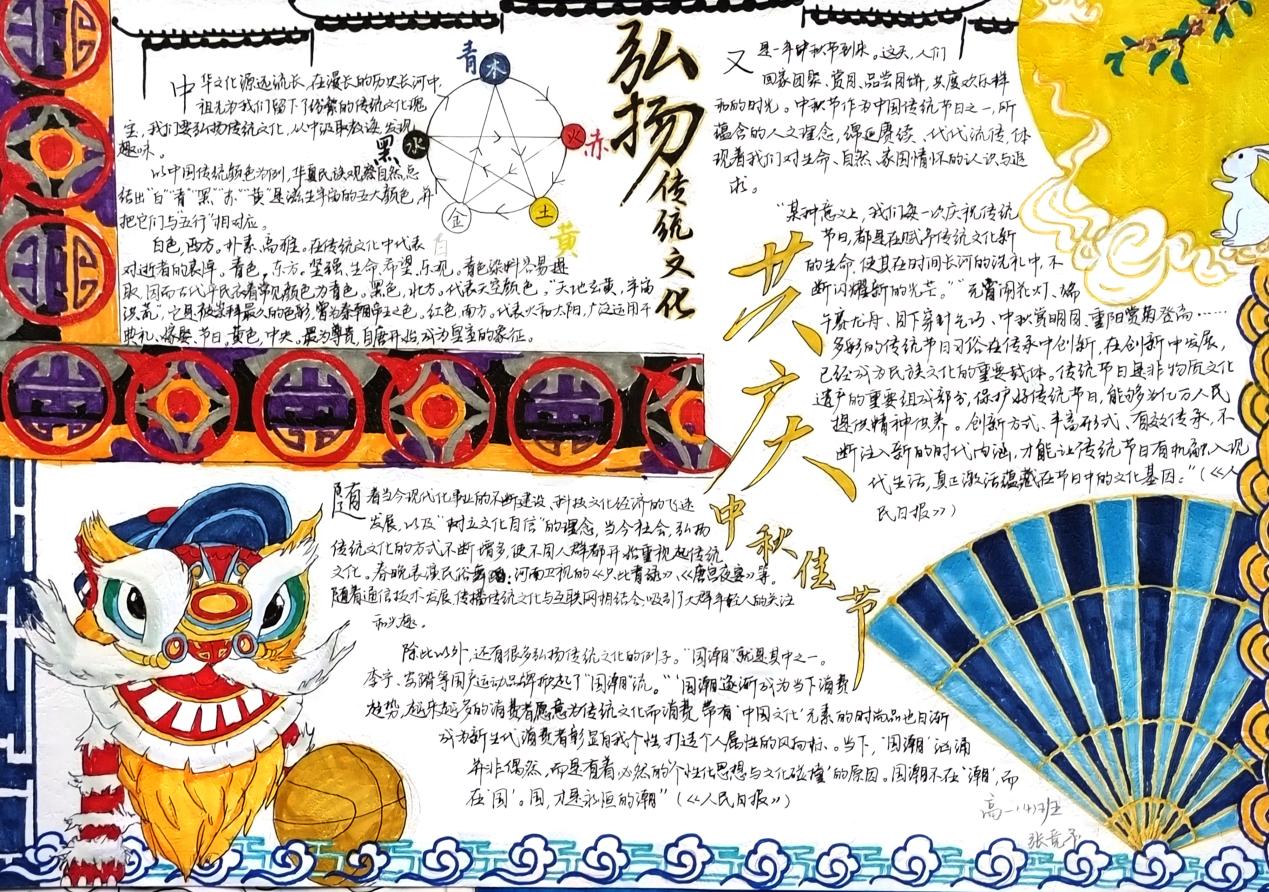 弘扬传统文化
共庆中秋佳节
中华文化源远流长,在漫长的历史长河中,
祖先为我们留下了纷繁的传统文化瑰
宝,我们要弘扬传统文化,从中汲取教诲,发现
趣味。
以中国传统颜色为例,华夏民族观察自然,总
结出“白”“青”“黑”“赤”“黄”是滋生宇宙的五大颜色,并
把它们与“五行”相对应。
白色,西方。朴素、高雅。在传统文化中代表
对逝者的哀悼。青色,东方。坚强、生命、希望、乐观。青色染料容易提
取,因而古代平民衣着常见颜色为青色。黑色,北方。代表天空颜色,“天地玄黄,宇宙
洪流”,它是被崇拜最久的色彩,曾为秦朝帝王之色。红色,南方。代表火和太阳,广泛运用于
典礼、嫁娶、节日,黄色,中央。最为尊贵,自唐开始成为皇室的象征。
青
木
火
赤
土
黄
金
白
水
黑
又是一年中秋节到来。这天,人们
回家团聚、赏月、品尝月饼,共度欢乐祥
和的时光。中秋节作为中国传统节日之一,所
蕴含的人文理念,绵延赓续、代代流传,体
现着我们对生命、自然、家国情怀的认识与追
求。
“某种意义上,我们每一次庆祝传统
节日,都是在赋予传统文化新
的生命,使其在时间长河的洗礼中,不
断闪耀新的光芒。”“元宵闹花灯、端
午赛龙舟、月下穿针乞巧、中秋赏明月、重阳赏菊登高……
多彩的传统节日习俗在传承中创新,在创新中发展,
已经成为民族文化的重要载体。传统节日是非物质文化
遗产的重要组成部分,保护好传统节日,能够为亿万人民
提供精神供养。创新方式、丰富形式、有效传承,不
断注入新的时代内涵,才能让传统节日有机融入现
代生活,真正激活蕴藏在节日中的文化基因。”(《人
民日报》)
随着当今现代化事业的不断建设,科技文化经济的飞速
发展,以及“树立文化自信”的理念,当今社会,弘扬
传统文化的方式不断增多,使不同人群都开始重视起传统
文化。春晚表演民俗舞蹈,河南卫视的《只此青绿》、《唐宫夜宴》等。
随着通信技术发展,传播传统文化与互联网相结合,吸引了大群年轻人的关注
和兴趣。
除此以外,还有很多弘扬传统文化的例子。“国潮”就是其中之一。
李宁、安踏等国产运动品牌掀起了“国潮”流。“‘国潮’逐渐成为当下消费
趋势,越来越多的消费者愿意为传统文化而消费,带有‘中国文化’元素的时尚品也日渐
成为新生代消费者彰显自我个性,打造个人属性的风向标。当下,‘国潮’汹涌
并非偶然,而是有着必然的‘个性化思想与文化碰撞’的原因。国潮不在‘潮’,而
在‘国’。国,才是永恒的潮”(《人民日报》)
高一(4)班